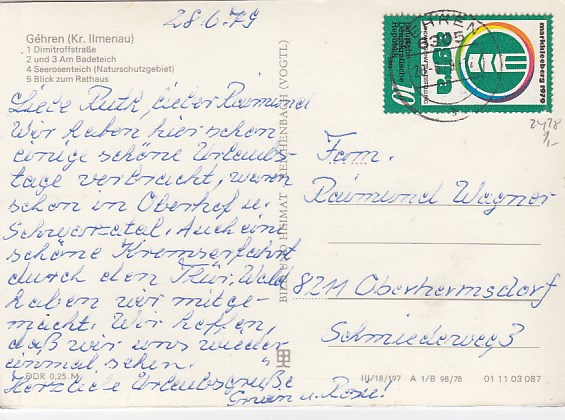 28.6.79
Gehren (Kr. Ilmenau)
1 Dimitroffstraße
2 und 3 Am Badeteich
4 Seerosenteich (Naturschutzgebiet)
5 Blick zum Rathaus
Liebe Ruth, lieber Raimund
Wir haben hier schon
einige schöne Urlaubs-
tage verbracht, waren
schon in Oberhof u.
Schwarzatal. Auch eine
schöne Kremserfahrt
durch den Thür. Wald
haben wir mitge-
macht. Wir hoffen,
daß wir uns wieder
einmal sehen.
Herzliche Urlaubsgrüße
u. Rosel
DDR 0,25 M
BILD UND HEIMAT REICHENBACH (VOGTL)
GEHREN
markkleeberg 1979
agra
Deutsche
Demokratische
Republik
10
2428
1,-
Fam.
Raimund Wagner
8211 Oberhermsdorf
Schmiedeweg 3
III/18/197 A 1/B 98/78 01 11 03 087